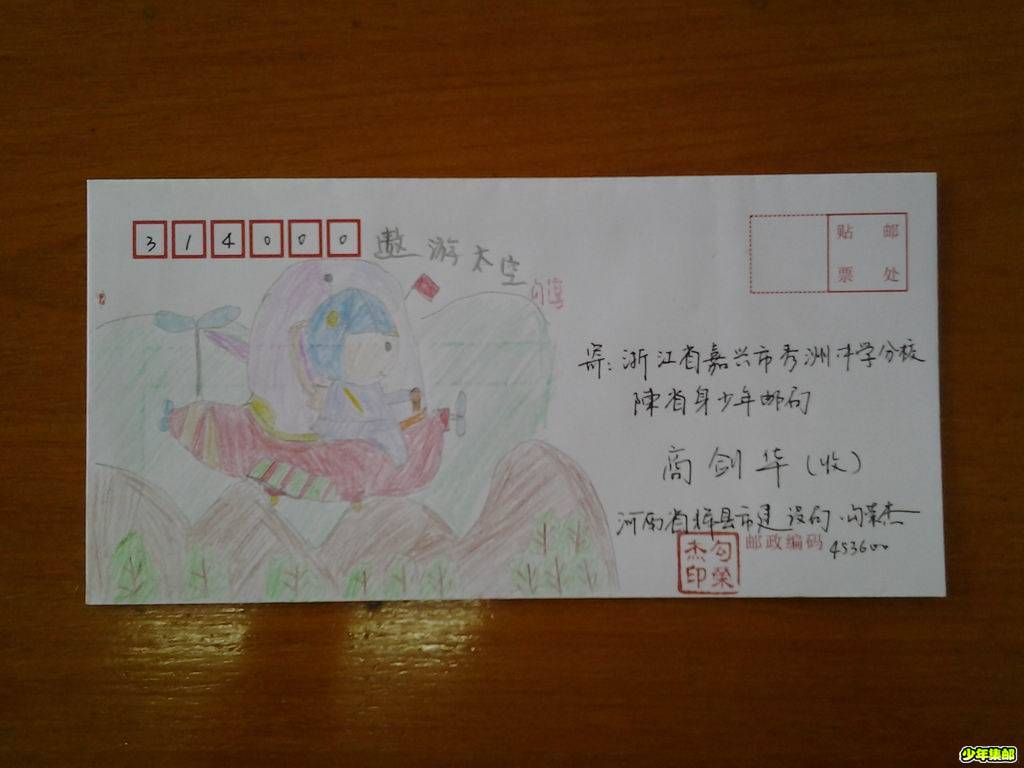 314000
遨游太空
贴 邮
票 处
寄:浙江省嘉兴市秀洲中学分校
陳省身少年邮局
商剑华(收)
河南省辉县市建设局 勾荣杰
邮政编码 453600
杰勾
印榮
少年集邮